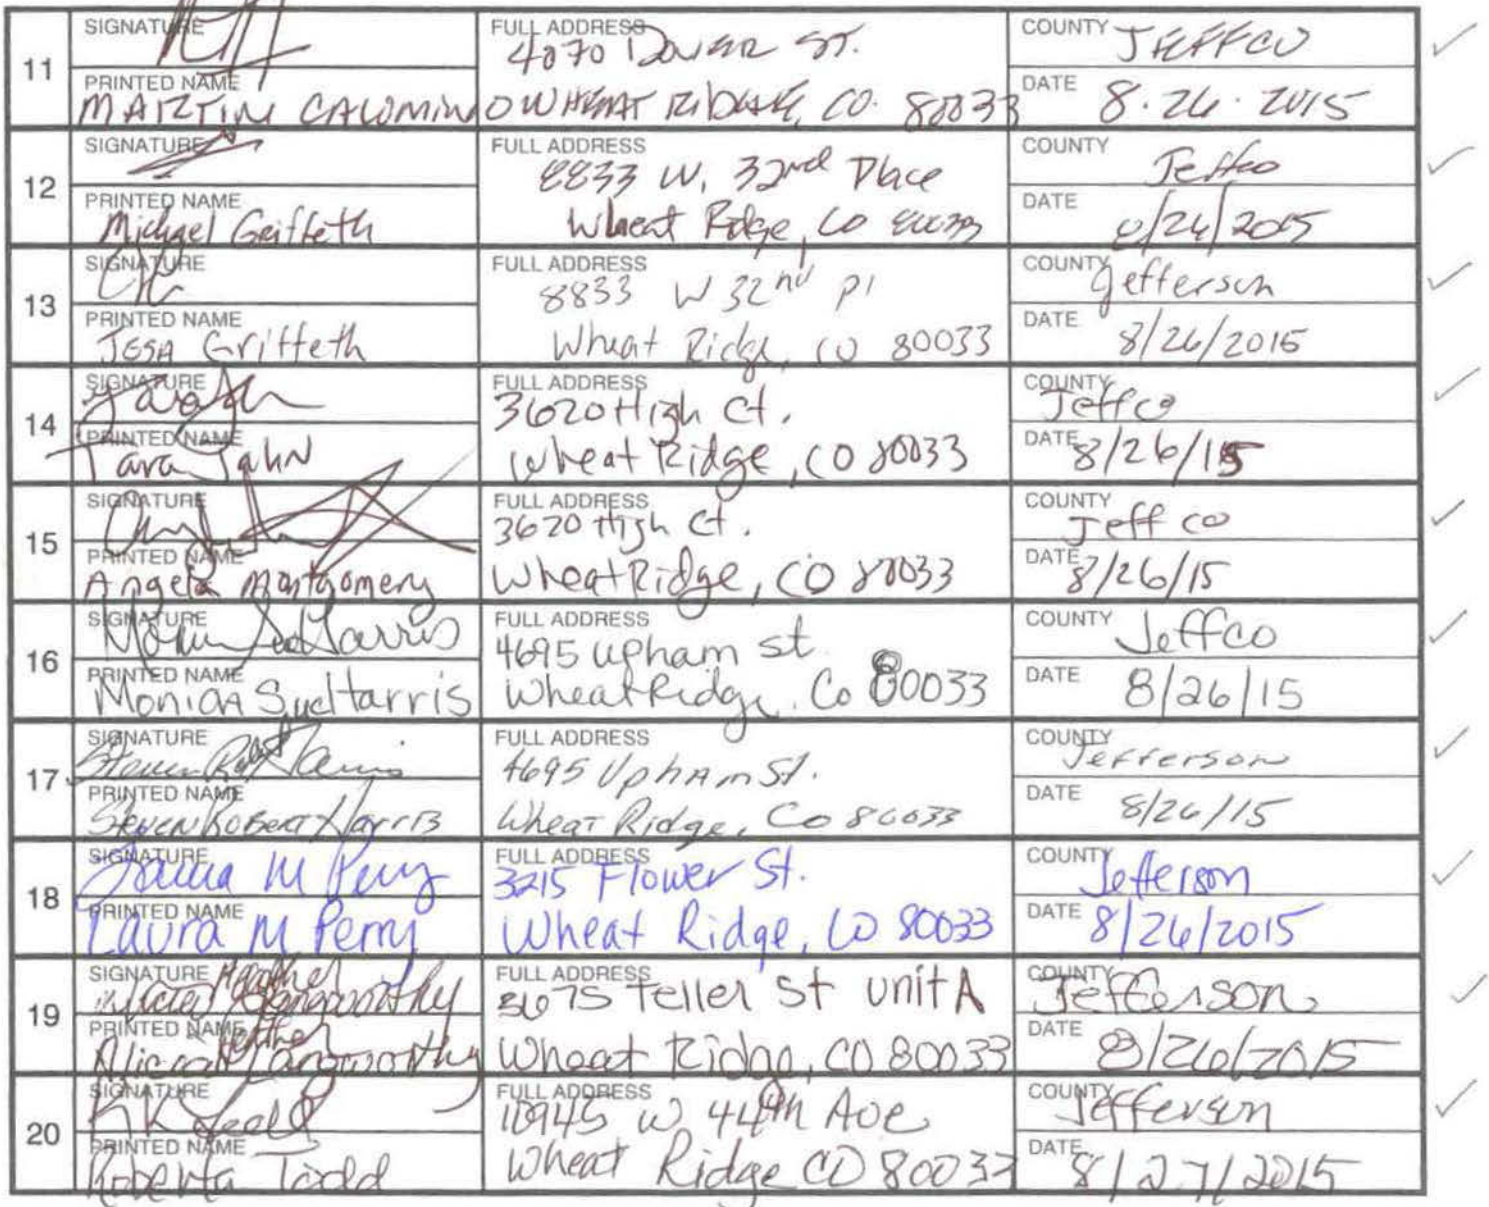 SIGNATURE FULL ADDRESS 4070 Dover ST. COUNTY JEFFCO
11
PRINTED NAME MARTIN CALOMINO WHEAT RIDGE, CO. 80033 DATE 8.26.2015
SIGNATURE FULL ADDRESS 8833 W. 32nd Place COUNTY Jeffco
12
PRINTED NAME Michael Griffeth Wheat Ridge, CO 80033 DATE 8/26/2015
SIGNATURE FULL ADDRESS 8833 W 32nd Pl COUNTY Jefferson
13
PRINTED NAME JESA Griffeth Wheat Ridge, CO 80033 DATE 8/26/2015
SIGNATURE FULL ADDRESS 3620 High Ct. COUNTY Jeffco
14
PRINTED NAME Tara Jahn Wheat Ridge, CO 80033 DATE 8/26/15
SIGNATURE FULL ADDRESS 3620 High Ct. COUNTY Jeffco
15
PRINTED NAME Angela Montgomery Wheat Ridge, CO 80033 DATE 8/26/15
SIGNATURE Monica Sue Harris FULL ADDRESS 4695 Upham St. COUNTY Jeffco
16
PRINTED NAME Monica Sue Harris Wheat Ridge, Co 80033 DATE 8/26/15
SIGNATURE Steven Robert Harris FULL ADDRESS 4695 Upham St. COUNTY Jefferson
17
PRINTED NAME Steven Robert Harris Wheat Ridge, Co 80033 DATE 8/26/15
SIGNATURE Laura M Perry FULL ADDRESS 3215 Flower St. COUNTY Jefferson
18
PRINTED NAME Laura M Perry Wheat Ridge, CO 80033 DATE 8/26/2015
SIGNATURE Alicia Heather Langworthy FULL ADDRESS 3675 Teller St Unit A COUNTY Jefferson
19
PRINTED NAME Alicia Heather Langworthy Wheat Ridge, CO 80033 DATE 8/26/2015
SIGNATURE FULL ADDRESS 10945 W 44th Ave COUNTY Jefferson
20
PRINTED NAME Roberta Todd Wheat Ridge CO 80033 DATE 8/27/2015